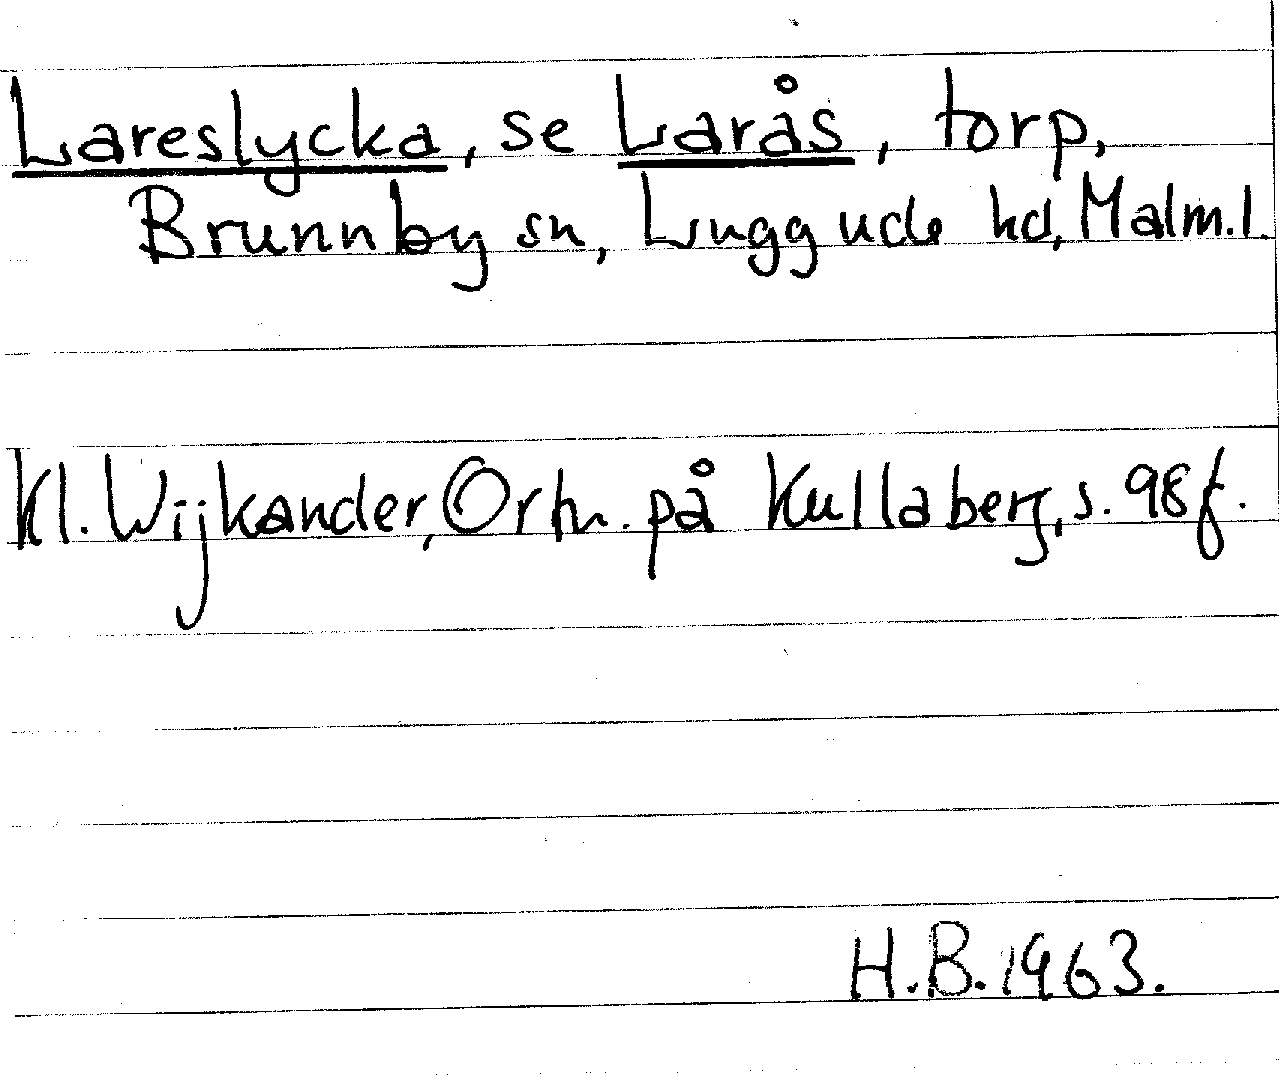 Lareslycka, se Larås, torp,
Brunnby sn, Luggude hd, Malm.l.
Kl. Wijkander, Ortn. på Kullaberg, s. 98 f.
H.B. 1963.